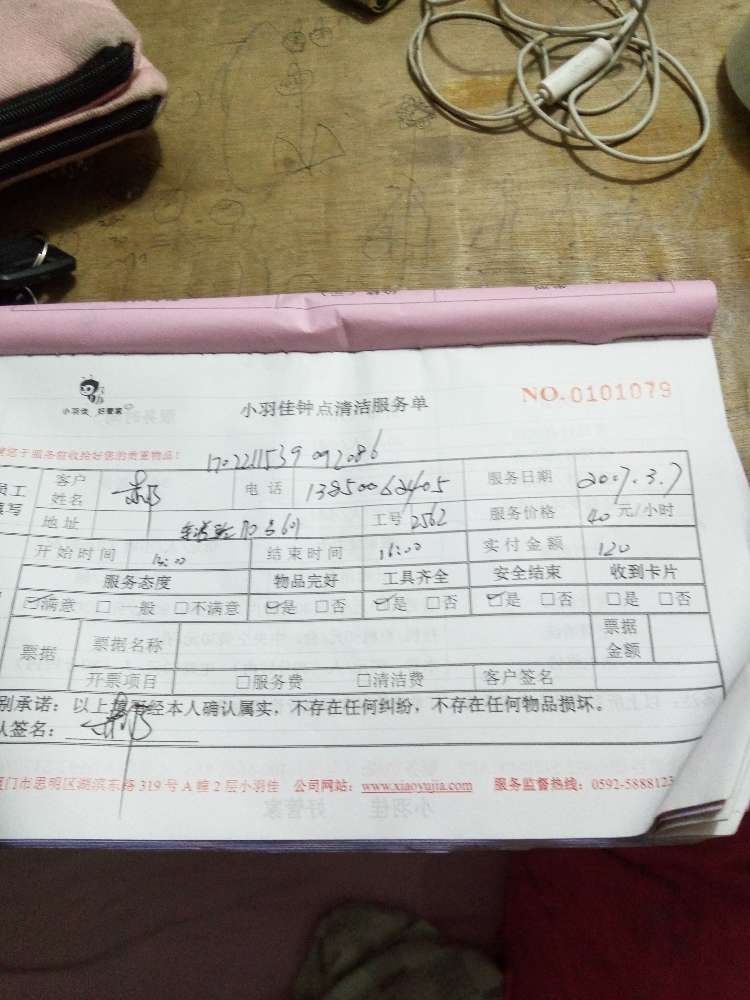 小羽佳 好管家
小羽佳钟点清洁服务单
NO.0101079
于服务前收拾好您的贵重物品!
1702211539092086
员工填写 客户姓名 电话 13850062405 服务日期 2017.3.7
地址 工号 2562 服务价格 40 元/小时
开始时间 结束时间 16:00 实付金额 120
服务态度 物品完好 工具齐全 安全结束 收到卡片
☑满意 □一般 □不满意 ☑是 □否 ☑是 □否 ☑是 □否 □是 □否
票据 票据名称 票据金额
开票项目 □服务费 □清洁费 客户签名
别承诺:以上填写经本人确认属实,不存在任何纠纷,不存在任何物品损坏。
认签名:
门市思明区湖滨东路 319 号 A 幢 2 层小羽佳 公司网站:www.xiaoyujia.com 服务监督热线:0592-5888123